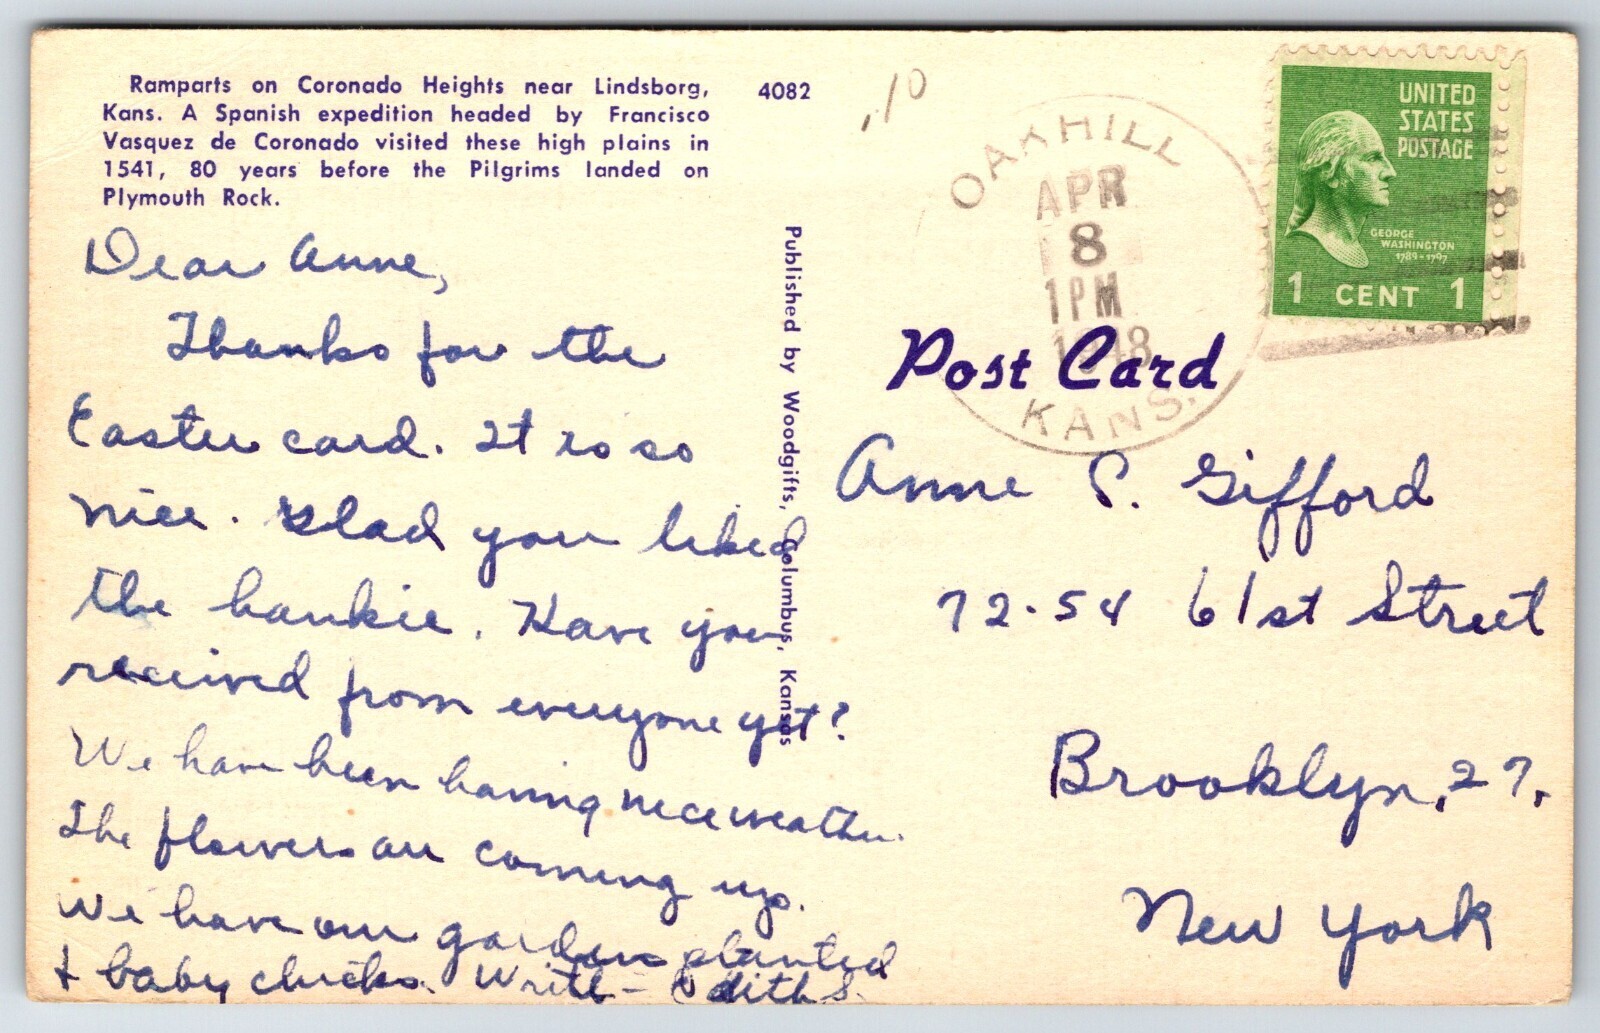 Ramparts on Coronado Heights near Lindsborg,
Kans. A Spanish expedition headed by Francisco
Vasquez de Coronado visited these high plains in
1541, 80 years before the Pilgrims landed on
Plymouth Rock.
4082
.10
Dear Anne,
Thanks for the
Easter card. It is so
nice. Glad you liked
the hankie. Have you
received from everyone yet?
We have been having nice weather.
The flowers are coming up.
We have our garden planted
+ baby chicks. Write - Edith S.
Published by Woodgifts, Columbus, Kansas
OAKHILL
APR
8
1PM
1948
KANS.
UNITED
STATES
POSTAGE
GEORGE
WASHINGTON
1789-1797
1 CENT 1
Post Card
Anne P. Gifford
72-54 61st Street
Brooklyn, 27,
New York